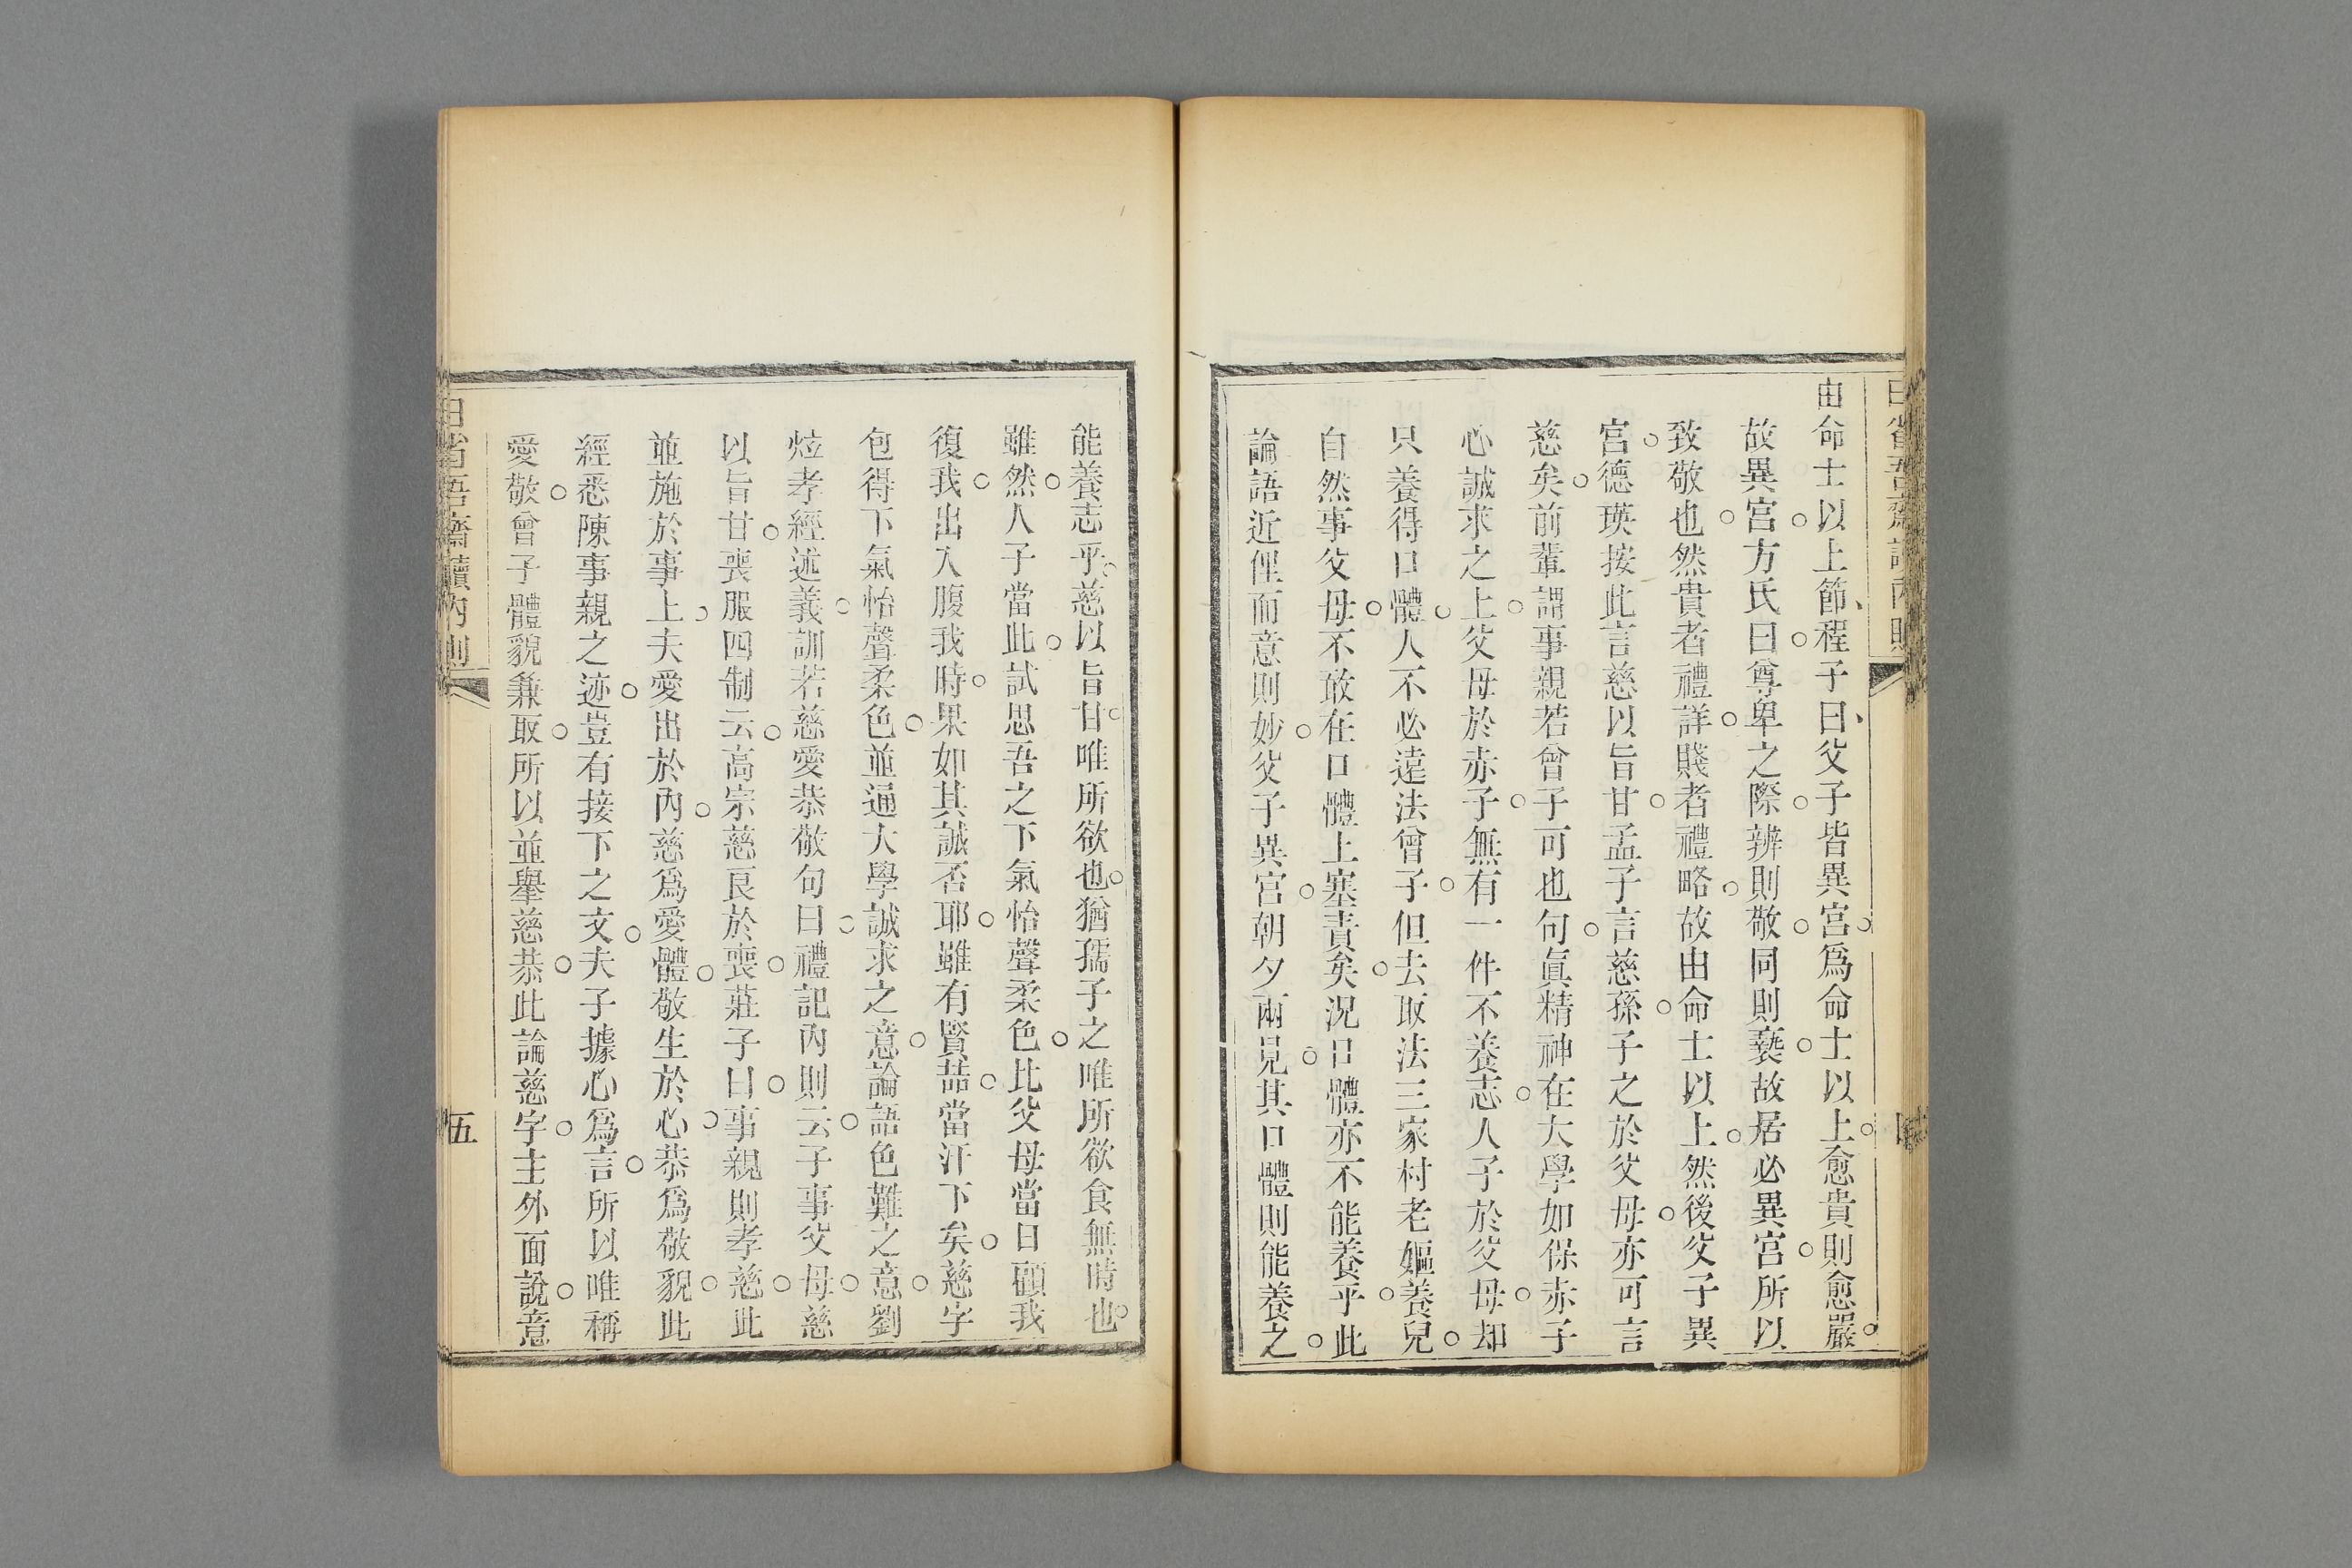 由命士以上節程子曰父子皆異宮爲命士以上愈貴則愈嚴
故異宮方氏曰尊卑之際辨則敬同則褻故居必異宮所以
致敬也然貴者禮詳賤者禮略故由命士以上然後父子異
宮德瑛按此言慈以旨甘孟子言慈孫子之於父母亦可言
慈矣前輩謂事親若曾子可也句眞精神在大學如保赤子
心誠求之上父母於赤子無有一件不養志人子於父母却
只養得口體人不必遠法曾子但去取法三家村老嫗養兒
自然事父母不敢在口體上塞責矣況口體亦不能養乎此
論語近俚而意則妙父子異宮朝夕兩見其口體則能養之
能養志乎慈以旨甘唯所欲也猶孺子之唯所欲食無時也
雖然人子當此試思吾之下氣怡聲柔色比父母當日顧我
復我出入腹我時果如其誠否耶雖有賢喆當汗下矣慈字
包得下氣怡聲柔色並通大學誠求之意論語色難之意劉
炫孝經述義訓若慈愛恭敬句曰禮記內則云子事父母慈
以旨甘喪服四制云高宗慈良於喪莊子曰事親則孝慈此
並施於事上夫愛出於內慈爲愛體敬生於心恭爲敬貌此
經悉陳事親之迹豈有接下之文夫子據心爲言所以唯稱
愛敬曾子體貌兼取所以並舉慈恭此論慈字主外面說意
日省吾齋讀內則
五